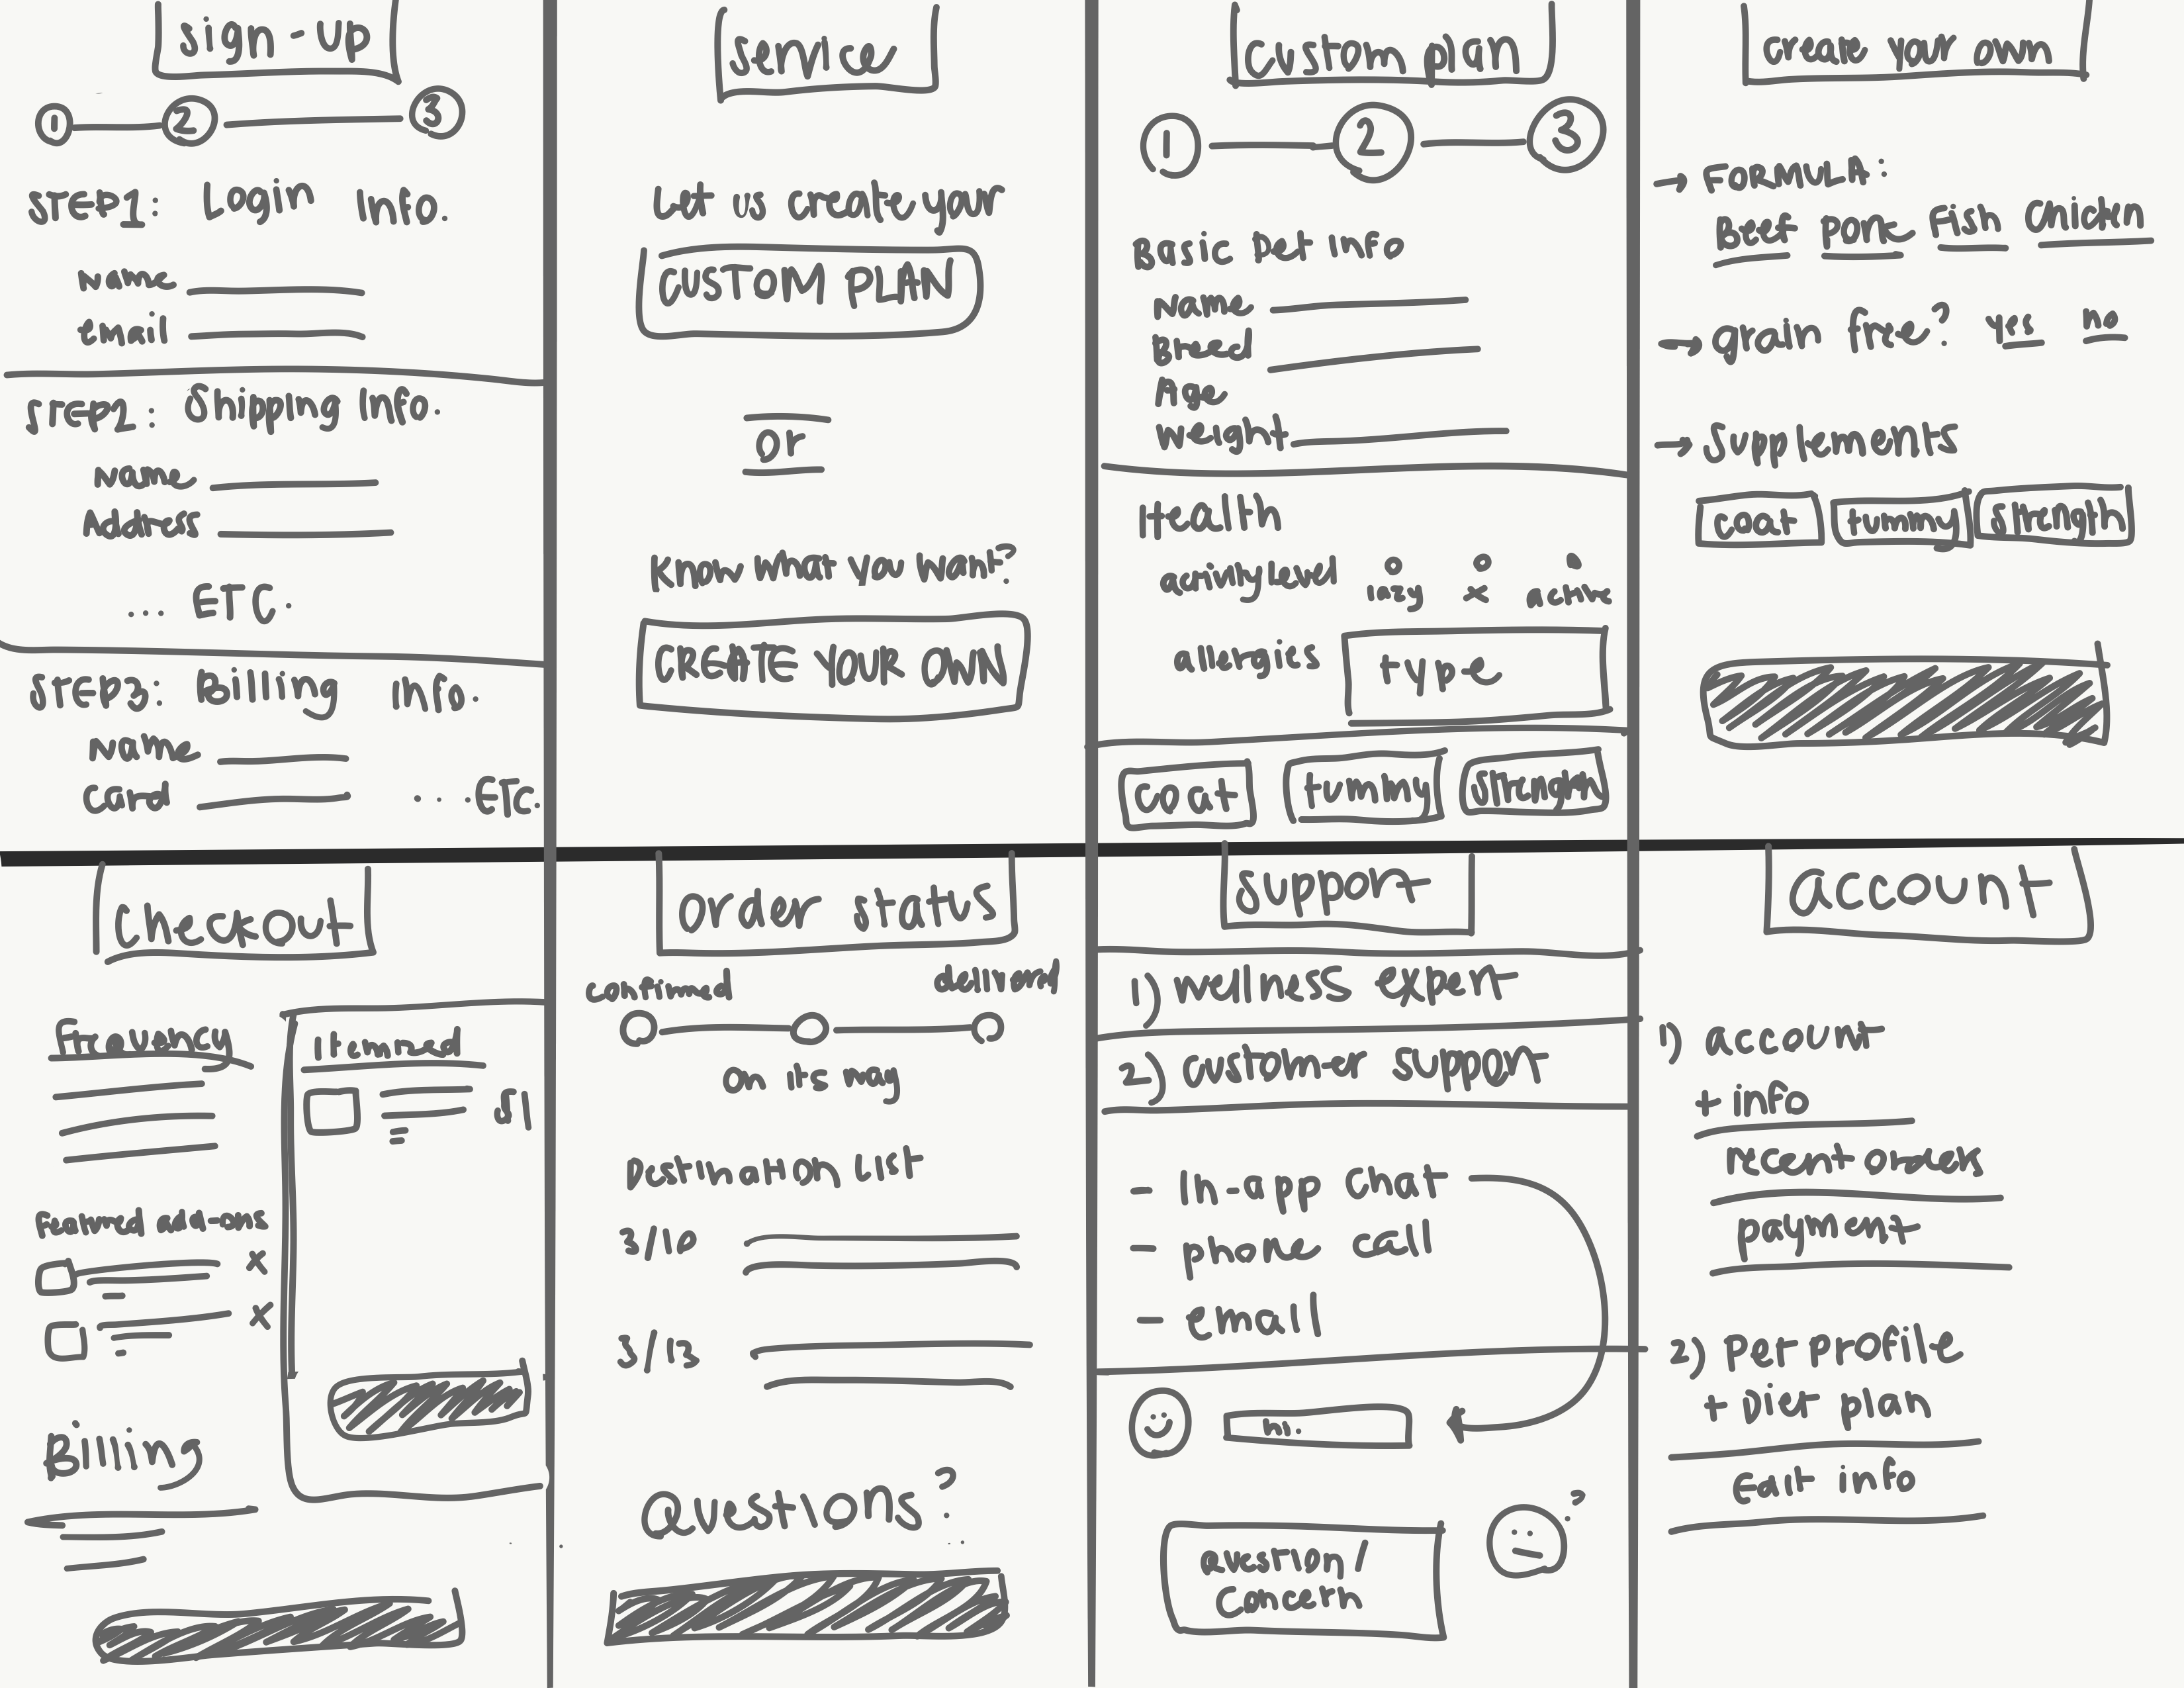 sign-up
1 2 3
STEP1: Login Info.
Name
email
STEP2: Shipping Info.
Name
Address
... ETC.
STEP3: Billing Info.
Name
Card ...ETC.
service
Let us create your
CUSTOM PLAN
or
Know what you want?
CREATE YOUR OWN
custom plan
1 2 3
Basic pet info
Name
Breed
Age
Weight
Health
activity level lazy x active
allergies type
coat tummy strength
create your own
→ FORMULA:
Beef pork Fish Chicken
→ grain free? yes no
→ Supplements
coat tummy strength
checkout
Frequency
Itemized
$1
Featured add-ons
x
x
Billing
order status
confirmed delivered
on its way
Destination List
3/10
3/13
Questions?
support
1) wellness expert
2) customer support
- In-app chat
- phone call
- email
hi.
?
question/
concern
account
1) account
+ info
recent orders
payment
2) pet profile
+ Diet plan
Edit info